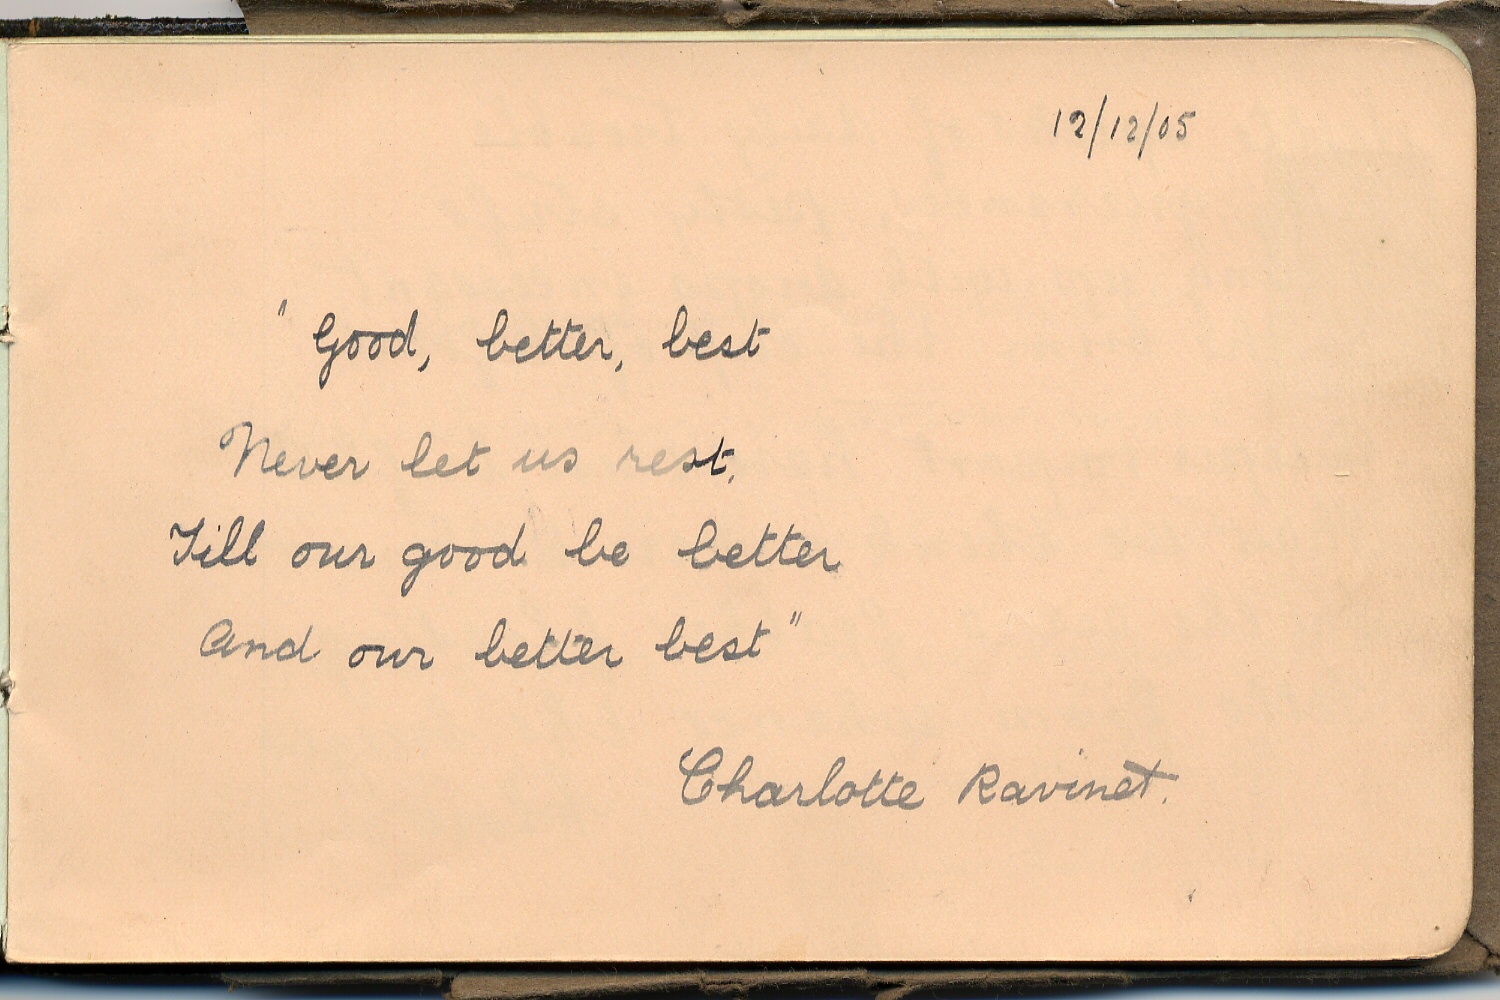 12/12/05
" Good, better, best
Never let us rest,
Till our good be better
And our better best"
Charlotte Ravinet.